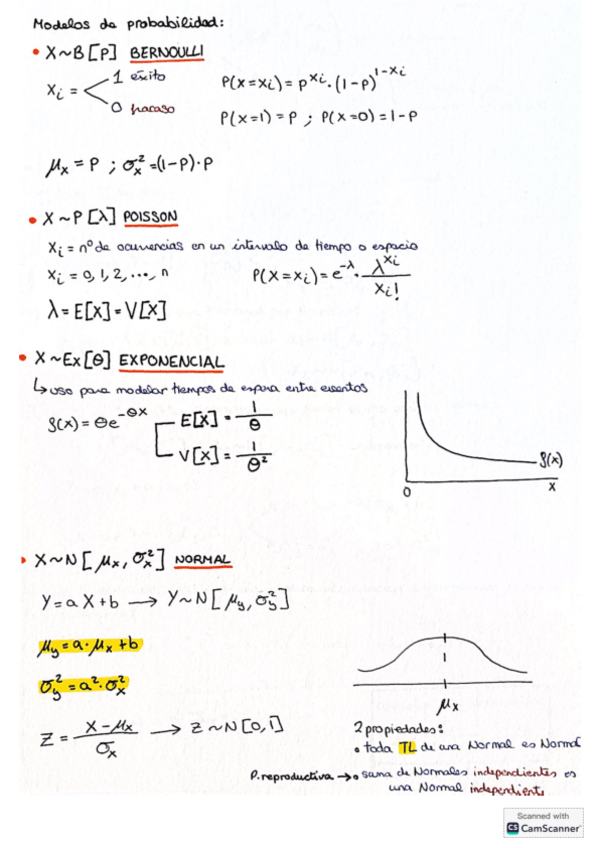 Modelos de probabilidad:
• X~B[P] BERNOULLI
xi = 1 éxito
0 fracaso
P(x=xi) = p^xi · (1-p)^1-xi
P(x=1) = P ; P(x=0) = 1-P
μx = P ; σx² = (1-P)·P
• X~P[λ] POISSON
Xi = nº de ocurrencias en un intervalo de tiempo o espacio
Xi = 0, 1, 2, ..., n
P(X=xi) = e^-λ · λ^xi / xi!
λ = E[X] = V[X]
• X~Ex[θ] EXPONENCIAL
↳ uso para modelar tiempos de espera entre eventos
f(x) = θe^-θx
E[X] = 1/θ
V[X] = 1/θ²
f(x)
0
x
• X~N[μx, σx²] NORMAL
Y = aX+b → Y~N[μy, σy²]
μy = a·μx+b
σy² = a²·σx²
μx
Z = X-μx / σx → Z~N[0,1]
2 propiedades:
• toda TL de una Normal es Normal
P. reproductiva → • suma de Normales independientes es
una Normal independient
Scanned with
CS CamScanner